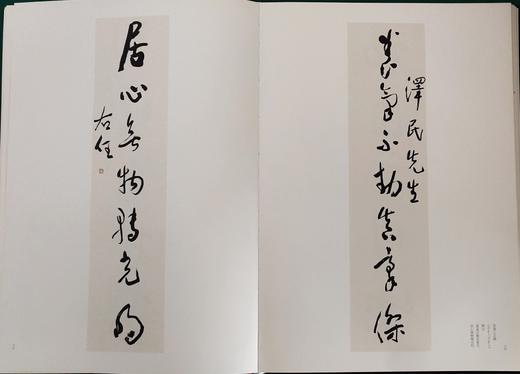 養氣不動真豪傑
澤民先生
居心無物轉光明
右任